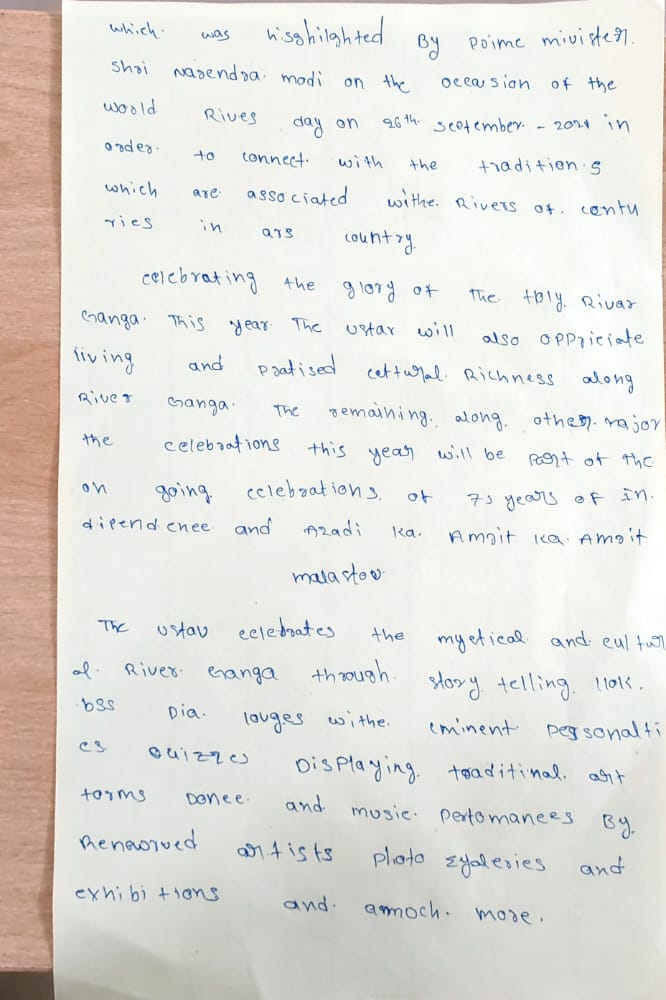 which. was hisghilghted By poime minister.
Shri Narendra. modi on the occasion of the
World Rives day on 26th. September. - 2021 in
order. to connect. with the tradition.s
which are. associated withe. Rivers of. centu
ries in ars country.
celebrating the glory of The. Holy. Rivar
Ganga. This year. The ustav will also oppriciate
living and pratised cultural. Richness along
River Ganga. The remaining. along. other. major
the celebrations this year will be part of the
on going. celebrations. of 75 years of In.
dipend ence and Azadi ka. Amrit ka. Amrit
malastov.
The ustav celebrates the mystical and cultur
al. River. Ganga through. story. telling.
Dia. louges withe. eminent personalti
es quizzes Displaying. traditinal. art
forms Dance. and music. perfomances By.
Renowved artists photo and
exhibi tions and. more.